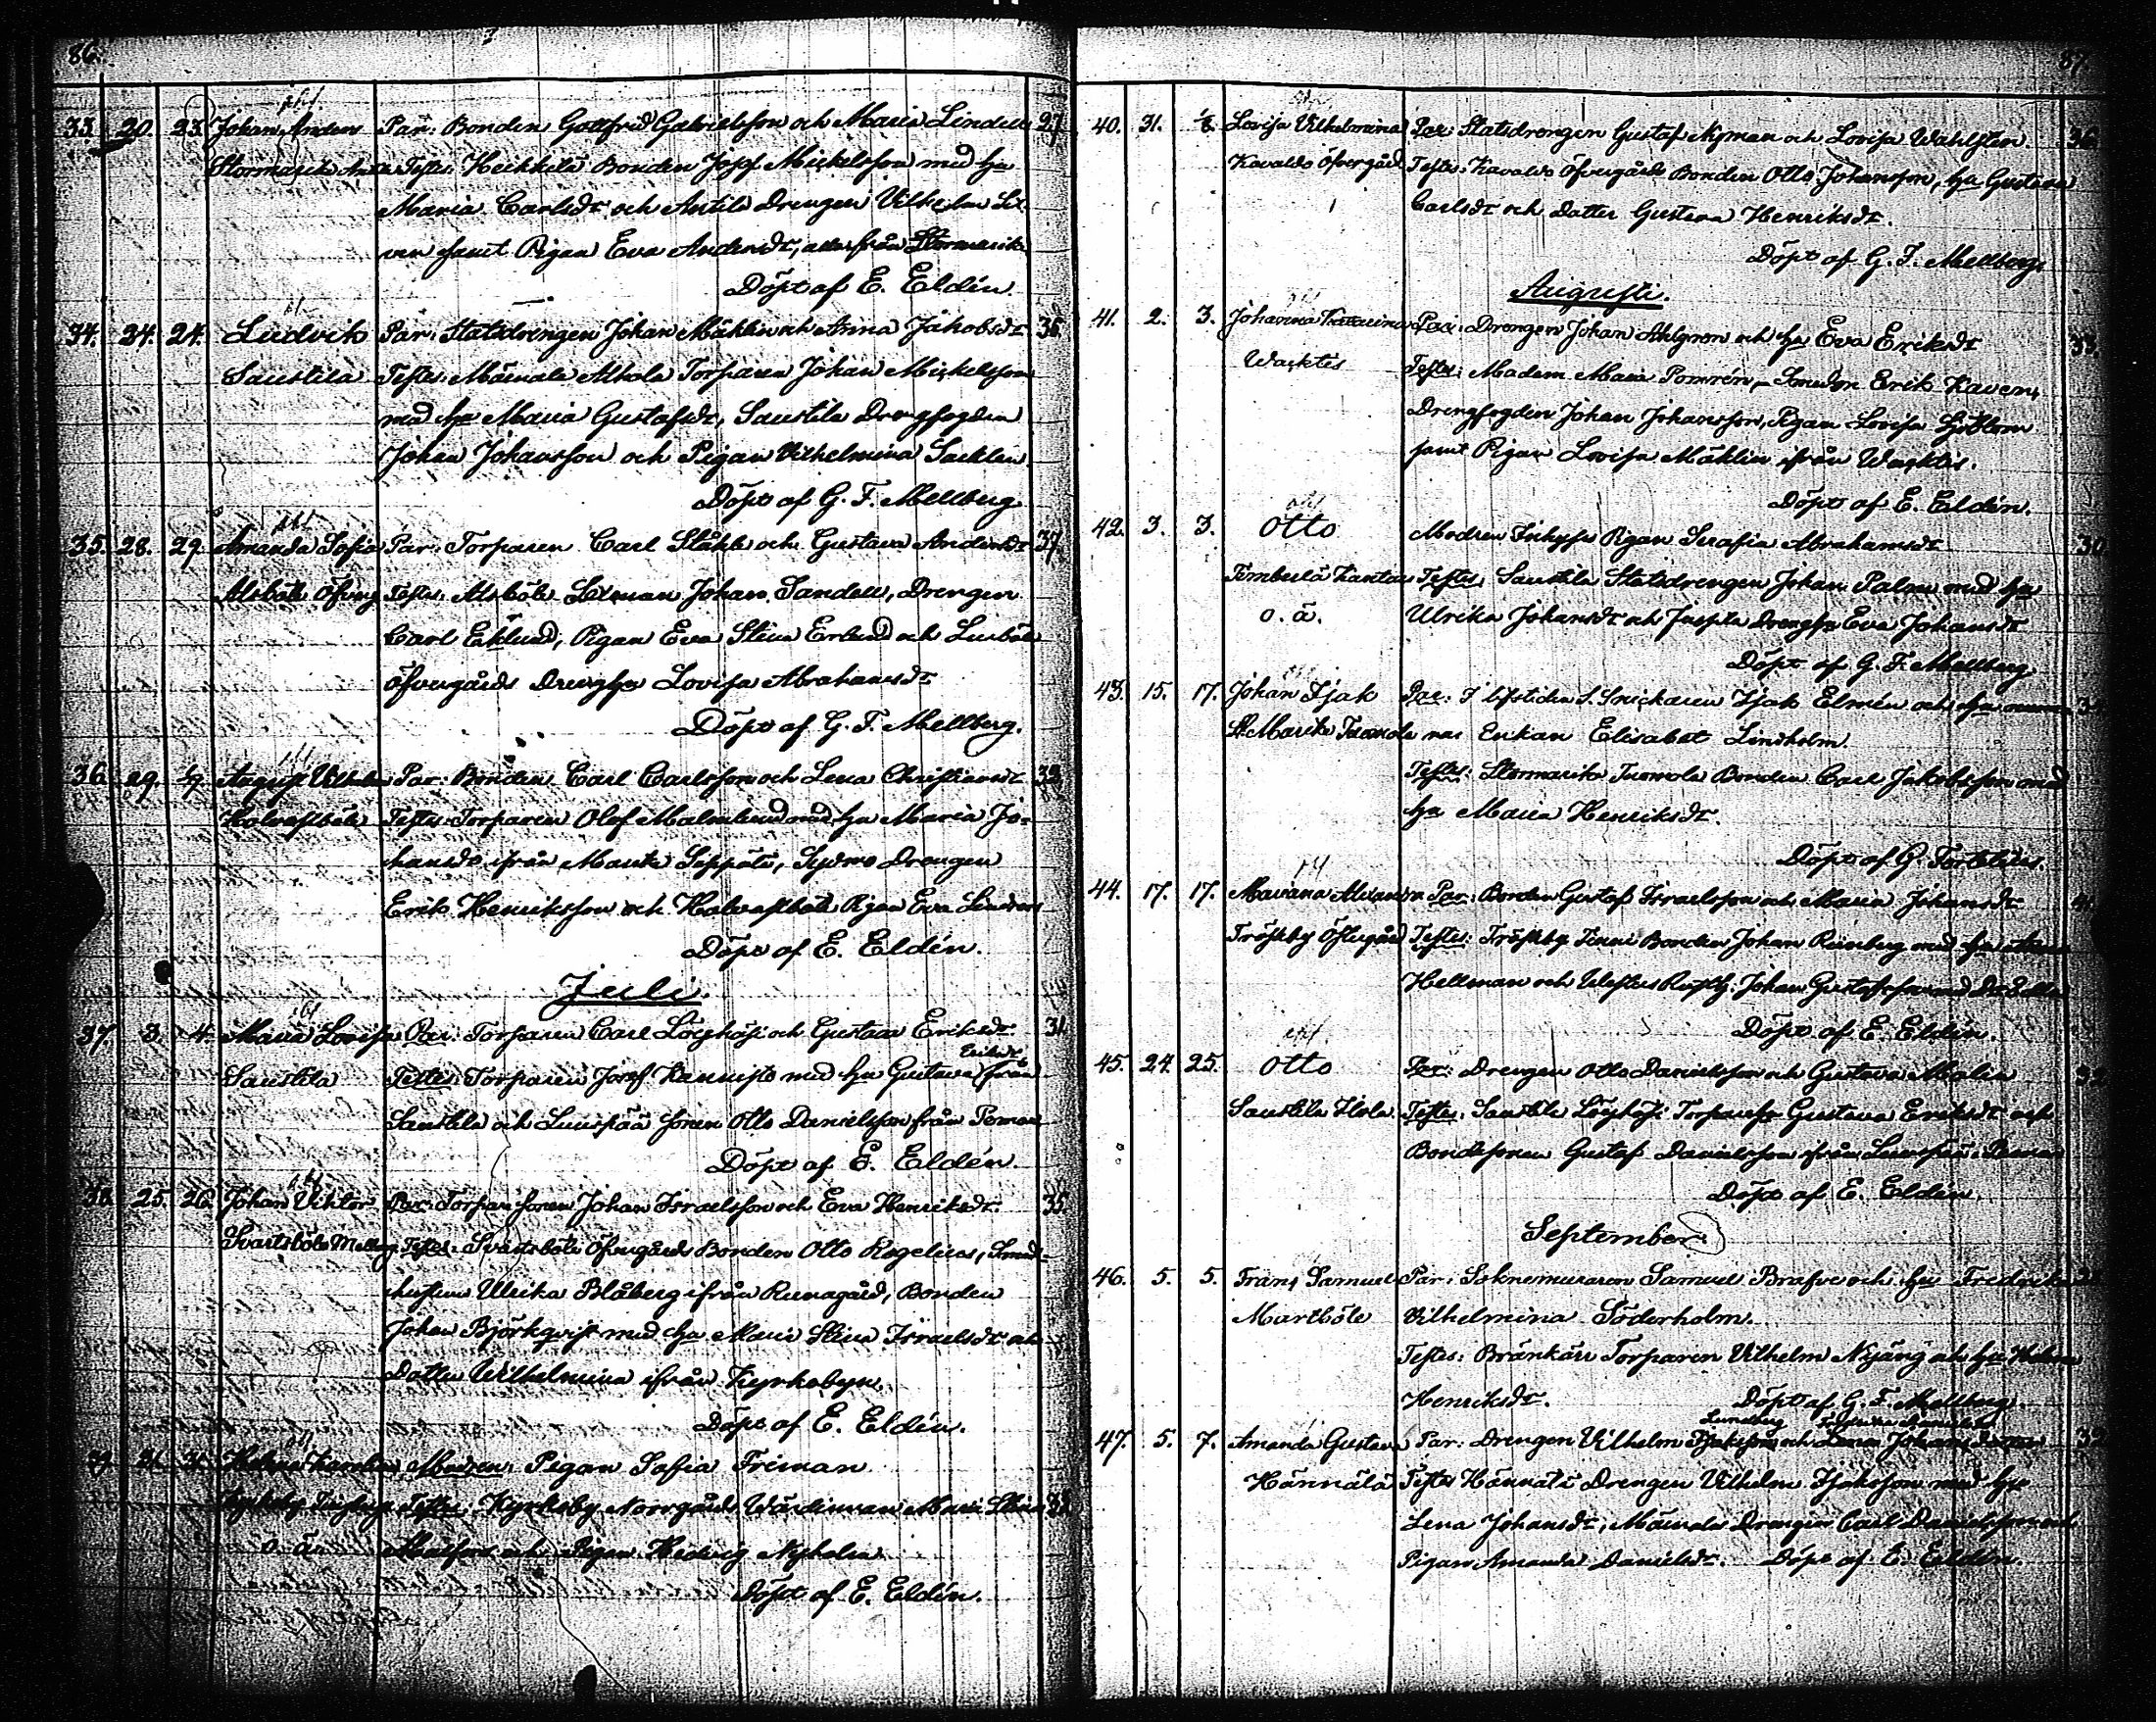 86.
33. 20. 23. Johan Anders Par: Bonden Gottfrid Gabrielsson och Maria Lindell 27
Stormarik Testes: Heikkilä Bonden Josef Mickelsson med hu
Maria Carlsdr och Antila Drengen Vilhelm
samt Pigan Eva Andersdr, alla från Stormarik
Döpt af E. Eldén.
34. 24. 24. Ludvik Par: Statdrengen Johan Mäklin och Anna Jakobsdr 36
Saustila Testes: Torparen Johan Mickelsson
med hu Maria Gustafsdr, Saustila Drengfogden
Johan Johansson och Pigan Vilhelmina Sacklen.
Döpt af G. F. Mellberg
35. 28. 29. Amanda Sofia Par: Torparen Carl Ståhle och Gustava Andersdr 37.
Alsböle Öfverg Testes: Alsböle Johan Sandell, Drengen
Carl Eklund, Pigan Eva Stina Erlund och
Öfvergårds Drenghu Lovisa Abrahamsdr
Döpt af G. F. Mellberg.
36. 29. August Vilhelm Par: Bonden Carl Carlsson och Lena Christiansdr 32
Halvastböle Testes: Torparen Olof Malmlund med hu Maria Jo-
hansdr ifrån Seppälä, Drengen
Erik Henriksson och Halvastböle Pigan Eva
Döpt af E. Eldén.
Juli.
37. 3. 4. Maria Lovisa Par: Torparen Carl Löyhöji och Gustava Eriksdr 31
Saustila Testes: Torparen Josef Kannisto med hu Gustava Eriksdr från
Saustila och Luuspää sonen Otto Danielsson från Pemar
Döpt af E. Eldén.
38. 25. 26. Johan Viktor Par: Torparesonen Johan Israelsson och Eva Henriksdr 35.
Svartsböle Mellg. Testes: Svartsböle Öfvergårds Bonden Otto Rogelius,
hustrun Ulrika Blåberg ifrån Runagård, Bonden
Johan Björkqvist med hu Maria Stina Israelsdr och
Dotter Wilhelmina ifrån Kyrkobyn.
Döpt af E. Eldén.
39. 31. Karolina Modren: Pigan Sofia Friman
Kyrkoby Testes: Kyrkoby Norrgårds Wärdinnan Maria Stina
o. ä. och Pigan Hedvig Nyholm
Döpt af E. Eldén.
87.
40. 31. Lovisa Vilhelmina Par: Statsdrengen Gustaf Nyman och Lovisa Wahlsten 36
Kavaldo Öfvergård Testes: Kavaldo Öfvergårds Bonden Otto Johansson, hu Gustava
Carlsdr och Dotter Gustava Henriksdr.
Döpt af G. F. Mellberg
Augusti.
41. 2. 3. Johanna Katarina Par: Drengen Johan Ahlgren och hu Eva Eriksdr 33.
Wacktis Testes: Madam Maria Pomrén, Smeden Erik Kaven,
Drengfogden Johan Johansson, Pigan Lovisa Sjöblom
samt Pigan Lovisa Mäklin ifrån Wacktis.
Döpt af E. Eldén.
42. 3. 3. Otto Modren Inhyses Pigan Serafia Abrahamsdr 30
Testes: Saustila Statsdrengen Johan Palm med hu
o. ä. Ulrika Johansdr och Juspila drenghu Eva Johansdr
Döpt af G. F. Mellberg
43. 15. 17. Johan Isak Par: I lifstiden S. Snickaren Isak Elmén och hu numera
St. Mariks Tuomola nar Enkan Elisabet Lindholm.
Testes: Stormariks Tuomola Bonden Carl Jakobsson med
hu Maria Henriksdr.
Döpt af G. Forteilius.
44. 17. 17. Mariana Par: Bonden Gustaf Israelsson och Maria Johansdr
Tröskby Öfvergård Testes: Tröskby Bonden Johan Renberg med hu Anna
Hellman och Johan Gustafsson
Döpt af E. Eldén.
45. 24. 25. Otto Par: Drengen Otto Danielsson och Gustava Malin
Saustila Testes: Saustila Löyhöji Torparehu Gustava Eriksdr och
Bondesonen Gustaf Danielsson ifrån Luuspää i Pemar
Döpt af E. Eldén.
September.
46. 5. 5. Frans Samuel Par: Soknemuraren Samuel Brafve och hu Fredrika
Martböle Vilhelmina Söderholm.
Testes: Bränkärr Torparen Vilhelm Nyäng och hu Helena
Henriksdr. Döpt af G. F. Mellberg.
47. 5. 7. Amanda Gustava Par: Drengen Vilhelm Lundberg och
Hännälä Testes: Hännälä Drengen Vilhelm Isaksson med hu
Lena Johansdr, Drengen Carl Danielsson och
Pigan Amanda Danielsdr. Döpt af E. Eldén.